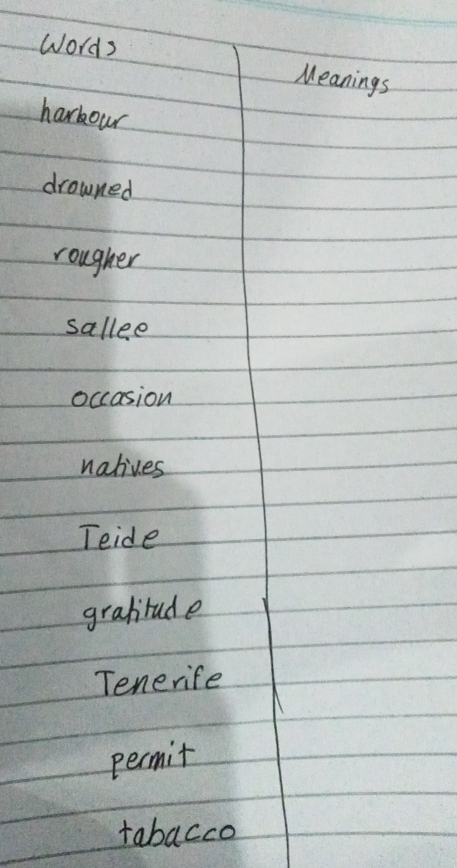 Words
Meanings
harbour
drowned
rougher
sallee
occasion
natives
Teide
gratitude
Tenerife
permit
tabacco